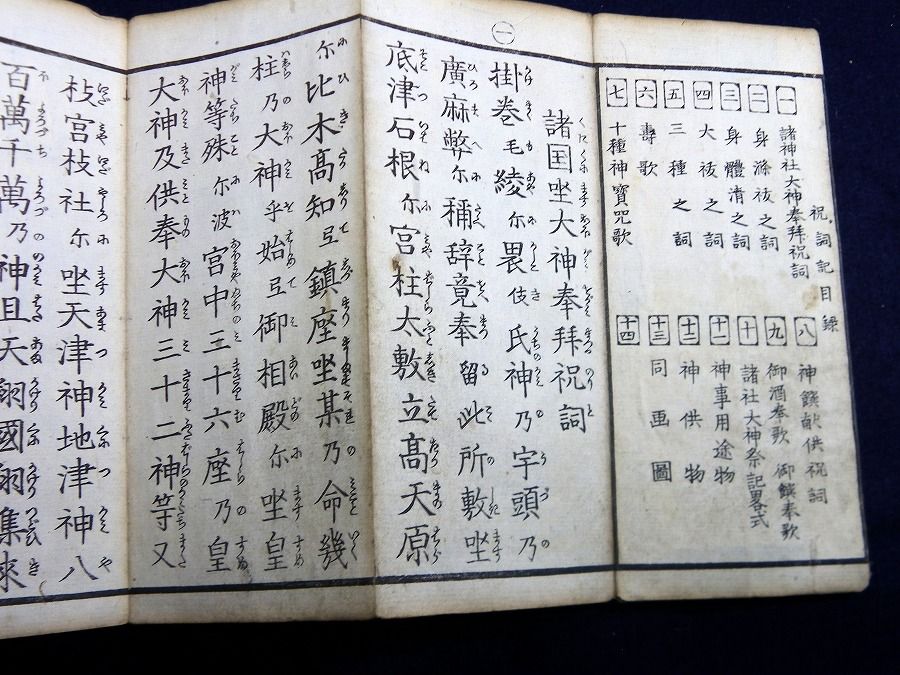 祝詞記目録
一 諸神社大神奉拜祝詞
二 身滌祓之詞
三 身體清之詞
四 大祓之詞
五 三種之詞
六 壽歌
七 十種神寶咒歌
八 神饌献供祝詞
九 御酒奉歌 御饌奉歌
十 諸社大神祭記畧式
十一 神事用途物
十二 神供物
十三 同画圖
十四
一
諸国坐大神奉拜祝詞
掛巻毛綾尓畏伎氏神乃宇頭乃
廣麻弊尓稱辞竟奉留此所敷坐
底津石根尓宮柱太敷立髙天原
尓比木髙知弖鎮座坐某乃命幾
柱乃大神乎始弖御相殿尓坐皇
神等殊尓波宮中三十六座乃皇
大神及供奉大神三十二神等又
枝宮枝社尓坐天津神地津神八
百萬千萬乃神且天翔國翔集来